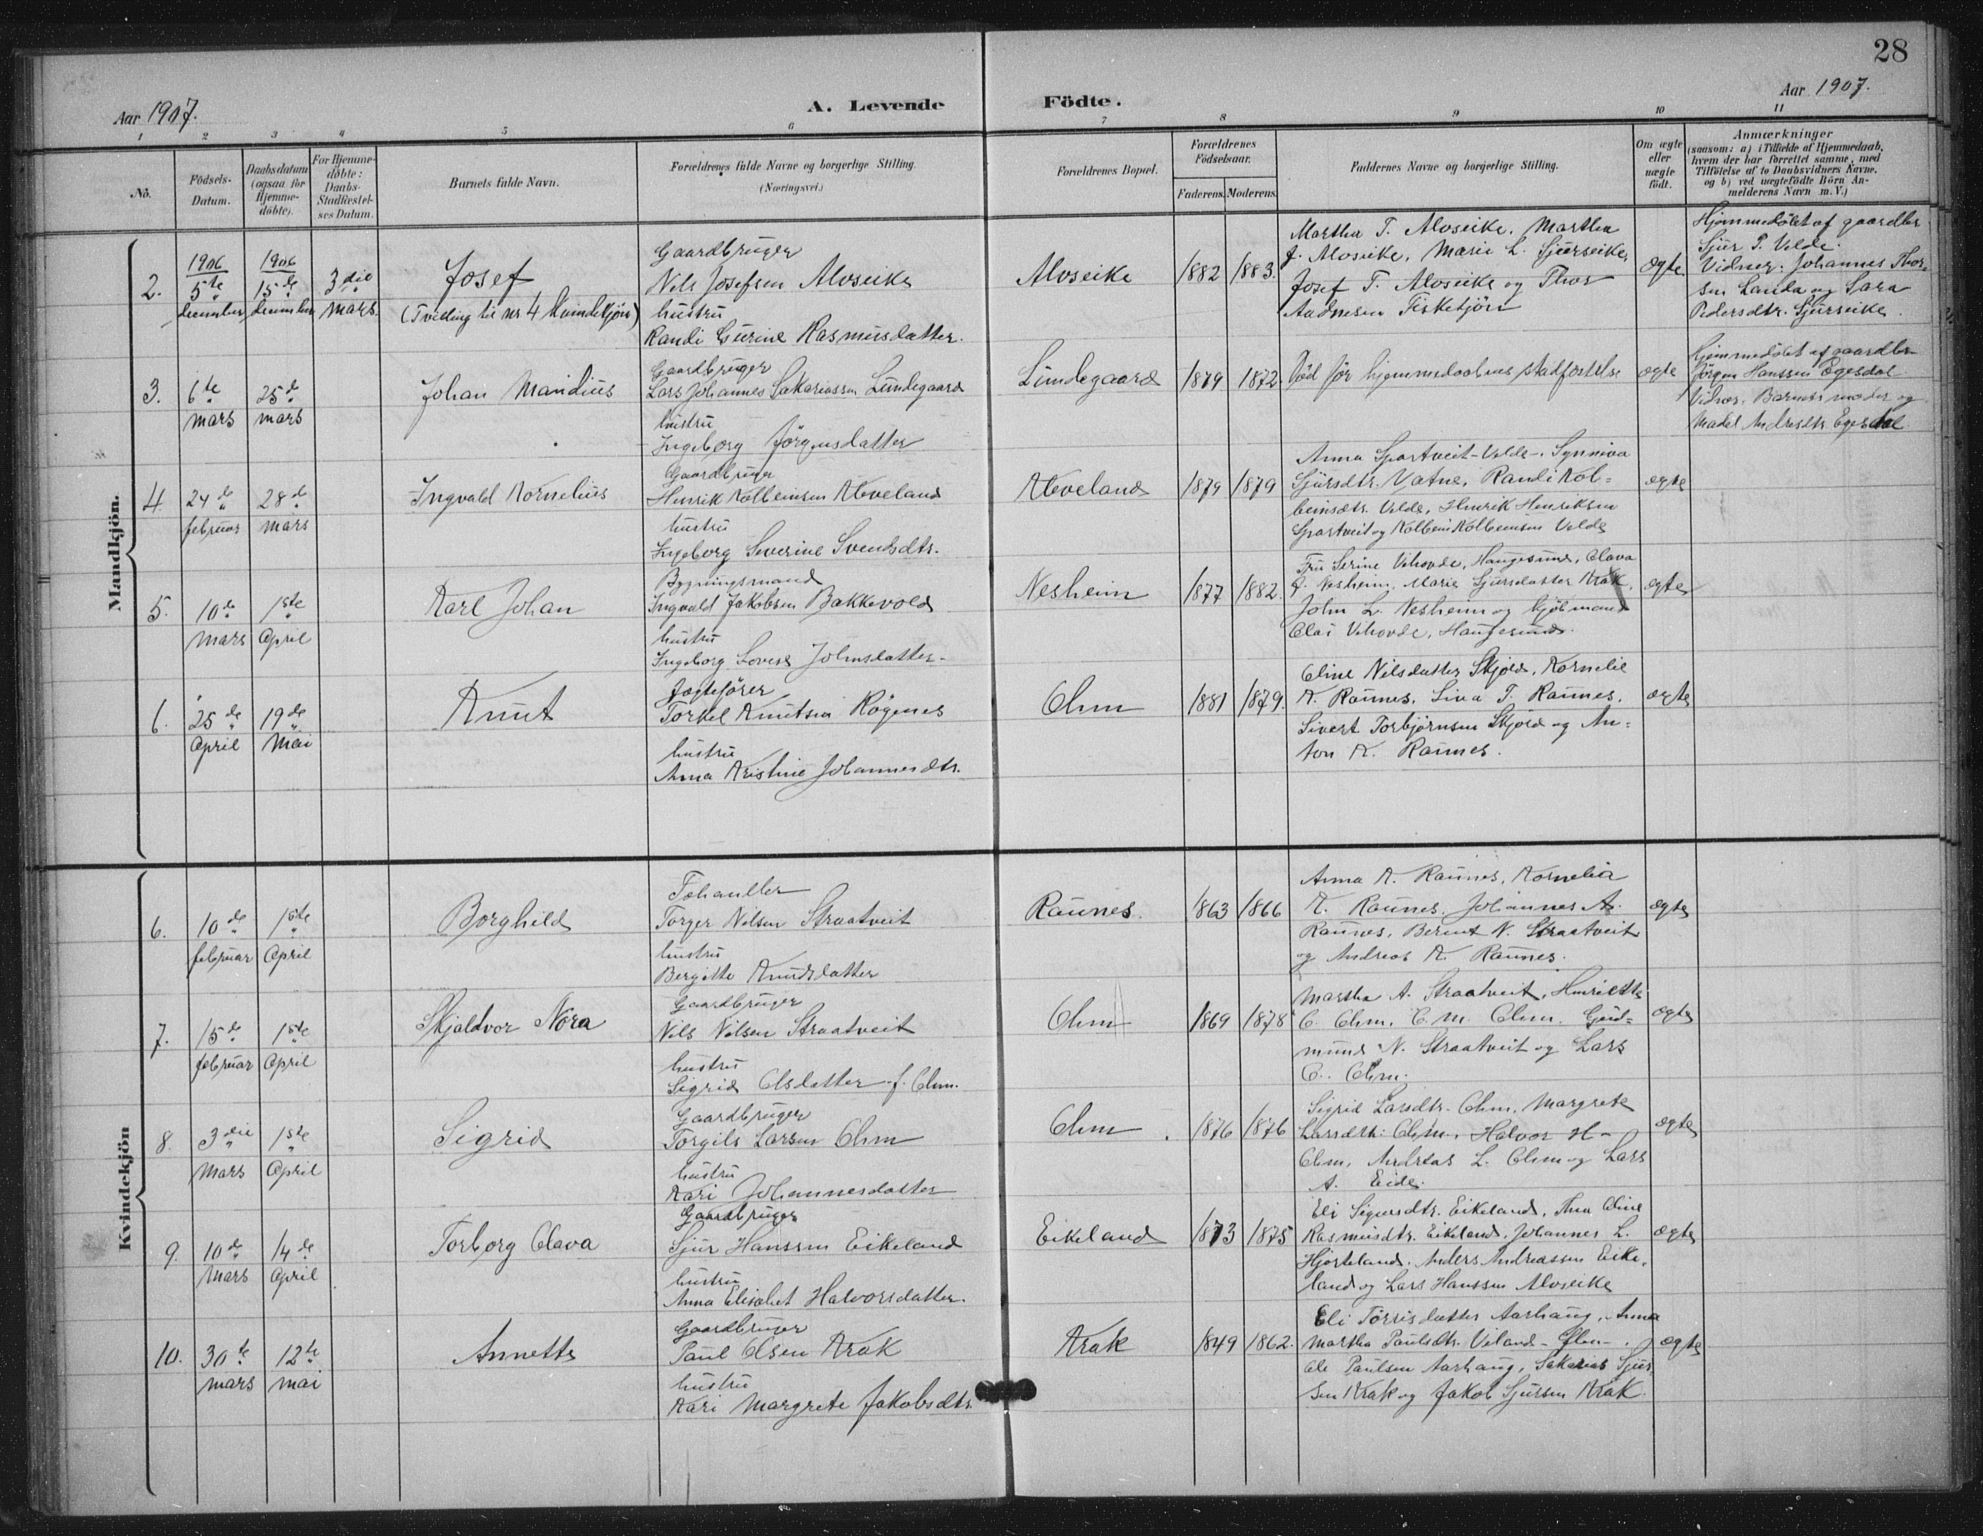 28
Aar 1907.
A. Levende
Födte.
Aar 1907.
1 2 3 4 5 6 7 8 9 10 11
Nö.
Födsels-
Datum.
Daabsdatum
(ogsaa for
Hjemme-
döbte).
For Hjemme-
döbte:
Daabs-
Stadfæstel-
ses Datum.
Barnets fulde Navn.
Forældrenes fulde Navne og borgerlige Stilling.
(Næringsvei.)
Forældrenes Bopæl.
Forældrenes
Födselsaar.
Faderens. Moderens.
Faddernes Navne og borgerlige Stilling.
Om ægte
eller
uægte
födt.
Anmærkninger
(saasom: a) i Tilfælde af Hjemmedaab,
hvem der har forrettet samme, med
Tilföielse af to Daabsvidners Navne,
og b) ved uægtefödte Börn An-
melderens Navn m. V.)
Mandkjön.
2.
1906
5te
december
1906
15de
december
3die
mars
Josef
(Tvilling til nr 4 Kvindekjön)
Gaardbruger
Nils Josefsen Alvseike
hustru
Randi Gurine Rasmusdatter.
Alvseike
1882
1883.
Martha T. Alvseike, Martha
J. Alvseike, Marie L. Sjurseike,
Josef T. Alvseike og Thor
Aadnesen Fisketjön
ægte
Hjemmedöbt af gaardbr
Sjur P. Velde.
Vidner: Johannes Thor-
sen Landa og Sara
Pedersdtr. Sjurseike.
3.
6te
mars
25de
mars
Johan Mandius
Gaardbruger
Lars Johannes Sakariassen Lundegaard
hustru
Ingeborg Jörgensdatter
Lundegaard
1879
1872.
Död för hjemmedaabens stadfæstelse
ægte
Hjemmedöbt af gaardbr
Jörgen Hanssen Egesdal
Vidner. Barnets moder og
Madel Andresdtr. Egesdal
4
24de
februar
28de
mars
Ingvald Kornelius
Gaardbruger
Henrik Kolbeinsen Kleveland
hustru
Ingeborg Severine Svendsdtr.
Kleveland
1879
1879
Anna Spartveit-Velde, Synniva
Sjursdtr. Vatne, Randi Kol-
beinsdtr. Velde, Henrik Henriksen
Spartveit og Kolbein Kolbeinsen Velde
ægte
5.
10de
mars
1ste
April
Karl Johan
Bygningsmand
Ingvald Jakobsen Bakkevold
hustru
Ingeborg Lovise Johnsdatter.
Nesheim
1877
1882.
Fru Serine Vihovde, Haugesund, Olava
J. Nesheim, Marie Sjursdatter Krak,
John L. Nesheim og kjöbmand
Olai Vihovde, Haugesund.
ægte
6.
25de
April
19de
Mai
Knut
Jagtefører
Torkel Knutsen Rögenes
hustru
Anna Kristine Johannesdtr.
Ohm
1881
1879.
Oline Nilsdatter Skjold, Kornelie
K. Raunes, Lina T. Raunes,
Sivert Torbjørnsen Skjold og An-
ton K. Raunes.
ægte
Kvindekjön
6.
10de
februar
1ste
April
Borghild
Torger Nilsen Straatveit
hustru
Bergitte Knudsdatter
Raunes.
1863
1866
Anna K. Raunes, Kornelia
K. Raunes, Johannes A.
Raunes, Bernt N. Straatveit
og Andreas K. Raunes.
ægte
7.
15de
februar
1ste
April
Skjaldvor Nora
Gaardbruger
Nils Nilsen Straatveit
hustru
Sigrid Olsdatter f. Ohm.
Ohm
1869
1878
Martha A. Straatveit, Henriette
O. Ohm, O. M. Ohm, Gud-
mund N. Straatveit og Lars
O. Ohm.
ægte
8.
3die
Mars
1ste
April
Sigrid
Gaardbruger
Torgils Larsen Ohm
hustru
Kari Johannesdatter
Ohm
1876
1876
Sigrid Larsdtr. Ohm, Margrete
Larsdtr. Ohm, Halvor H.
Ohm, Andreas L. Ohm og Lars
A. Eide.
ægte
9.
10de
Mars
14de
April
Torborg Olava
Gaardbruger
Sjur Hanssen Eikeland
hustru
Anna Elisabet Halvorsdatter.
Eikeland
1873
1875
Eli Sigursdtr. Eikeland, Thea Oline
Rasmusdtr. Eikeland, Johannes L.
Hjorteland, Anders Andreassen Eike-
land og Lars Hanssen Alvseike
ægte
10.
30te
mars
12te
mai
Annette
Gaardbruger
Paul Olsen Krak
hustru
Kari Margrete Jakobsdtr.
Krak
1849
1862.
Eli Törrisdatter Aarhaug, Anna
Martha Paulsdtr. Viland
Ole Paulsen Aarhaug, Sakarias Sjur-
sen Krak og Jakob Sjursen Krak.
ægte